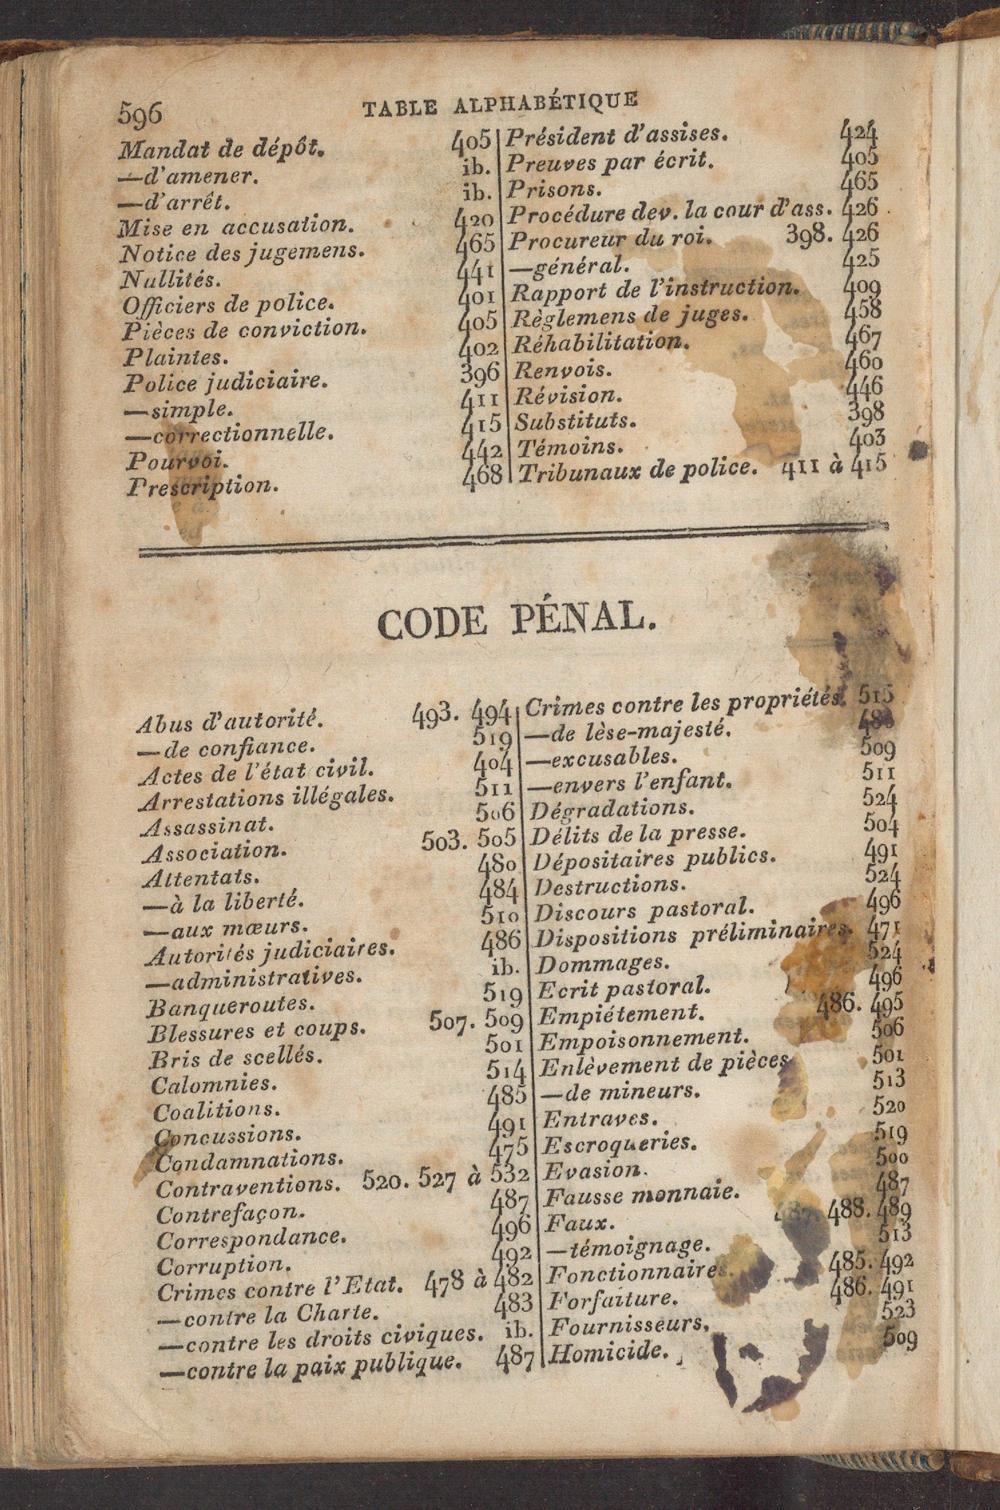 596
TABLE ALPHABÉTIQUE
Mandat de dépôt. 405
—d'amener. ib.
—d'arrêt. ib.
Mise en accusation. 420
Notice des jugemens. 465
Nullités. 441
Officiers de police. 401
Pièces de conviction. 405
Plaintes. 402
Police judiciaire. 396
—simple. 411
—correctionnelle. 415
Pourvoi. 442
Prescription. 468
Président d'assises. 424
Preuves par écrit. 405
Prisons. 465
Procédure dev. la cour d'ass. 426
Procureur du roi. 398. 426
—général. 425
Rapport de l'instruction. 409
Règlemens de juges. 458
Réhabilitation. 467
Renvois. 460
Révision. 446
Substituts. 398
Témoins. 403
Tribunaux de police. 411 à 415
CODE PÉNAL.
Abus d'autorité. 493. 494
—de confiance. 519
Actes de l'état civil. 404
Arrestations illégales. 511
Assassinat. 506
Association. 503. 505
Attentats. 480
—à la liberté. 484
—aux mœurs. 510
Autorités judiciaires. 486
—administratives. ib.
Banqueroutes. 519
Blessures et coups. 507. 509
Bris de scellés. 501
Calomnies. 514
Coalitions. 485
Concussions. 491
Condamnations. 475
Contraventions. 520. 527 à 532
Contrefaçon. 487
Correspondance. 496
Corruption. 492
Crimes contre l'Etat. 478 à 482
—contre la Charte. 483
—contre les droits civiques. ib.
—contre la paix publique. 487
Crimes contre les propriétés. 515
—de lèse-majesté.
—excusables. 509
—envers l'enfant. 511
Dégradations. 524
Délits de la presse. 504
Dépositaires publics. 491
Destructions. 524
Discours pastoral. 496
Dispositions préliminaires. 471
Dommages. 524
Ecrit pastoral. 496
Empiétement. 486. 495
Empoisonnement. 506
Enlèvement de pièces 501
—de mineurs. 513
Entraves. 520
Escroqueries. 519
Evasion. 500
Fausse monnaie. 487
Faux. 488. 489
—témoignage. 513
Fonctionnaires. 485. 492
Forfaiture. 486. 491
Fournisseurs. 523
Homicide. 509